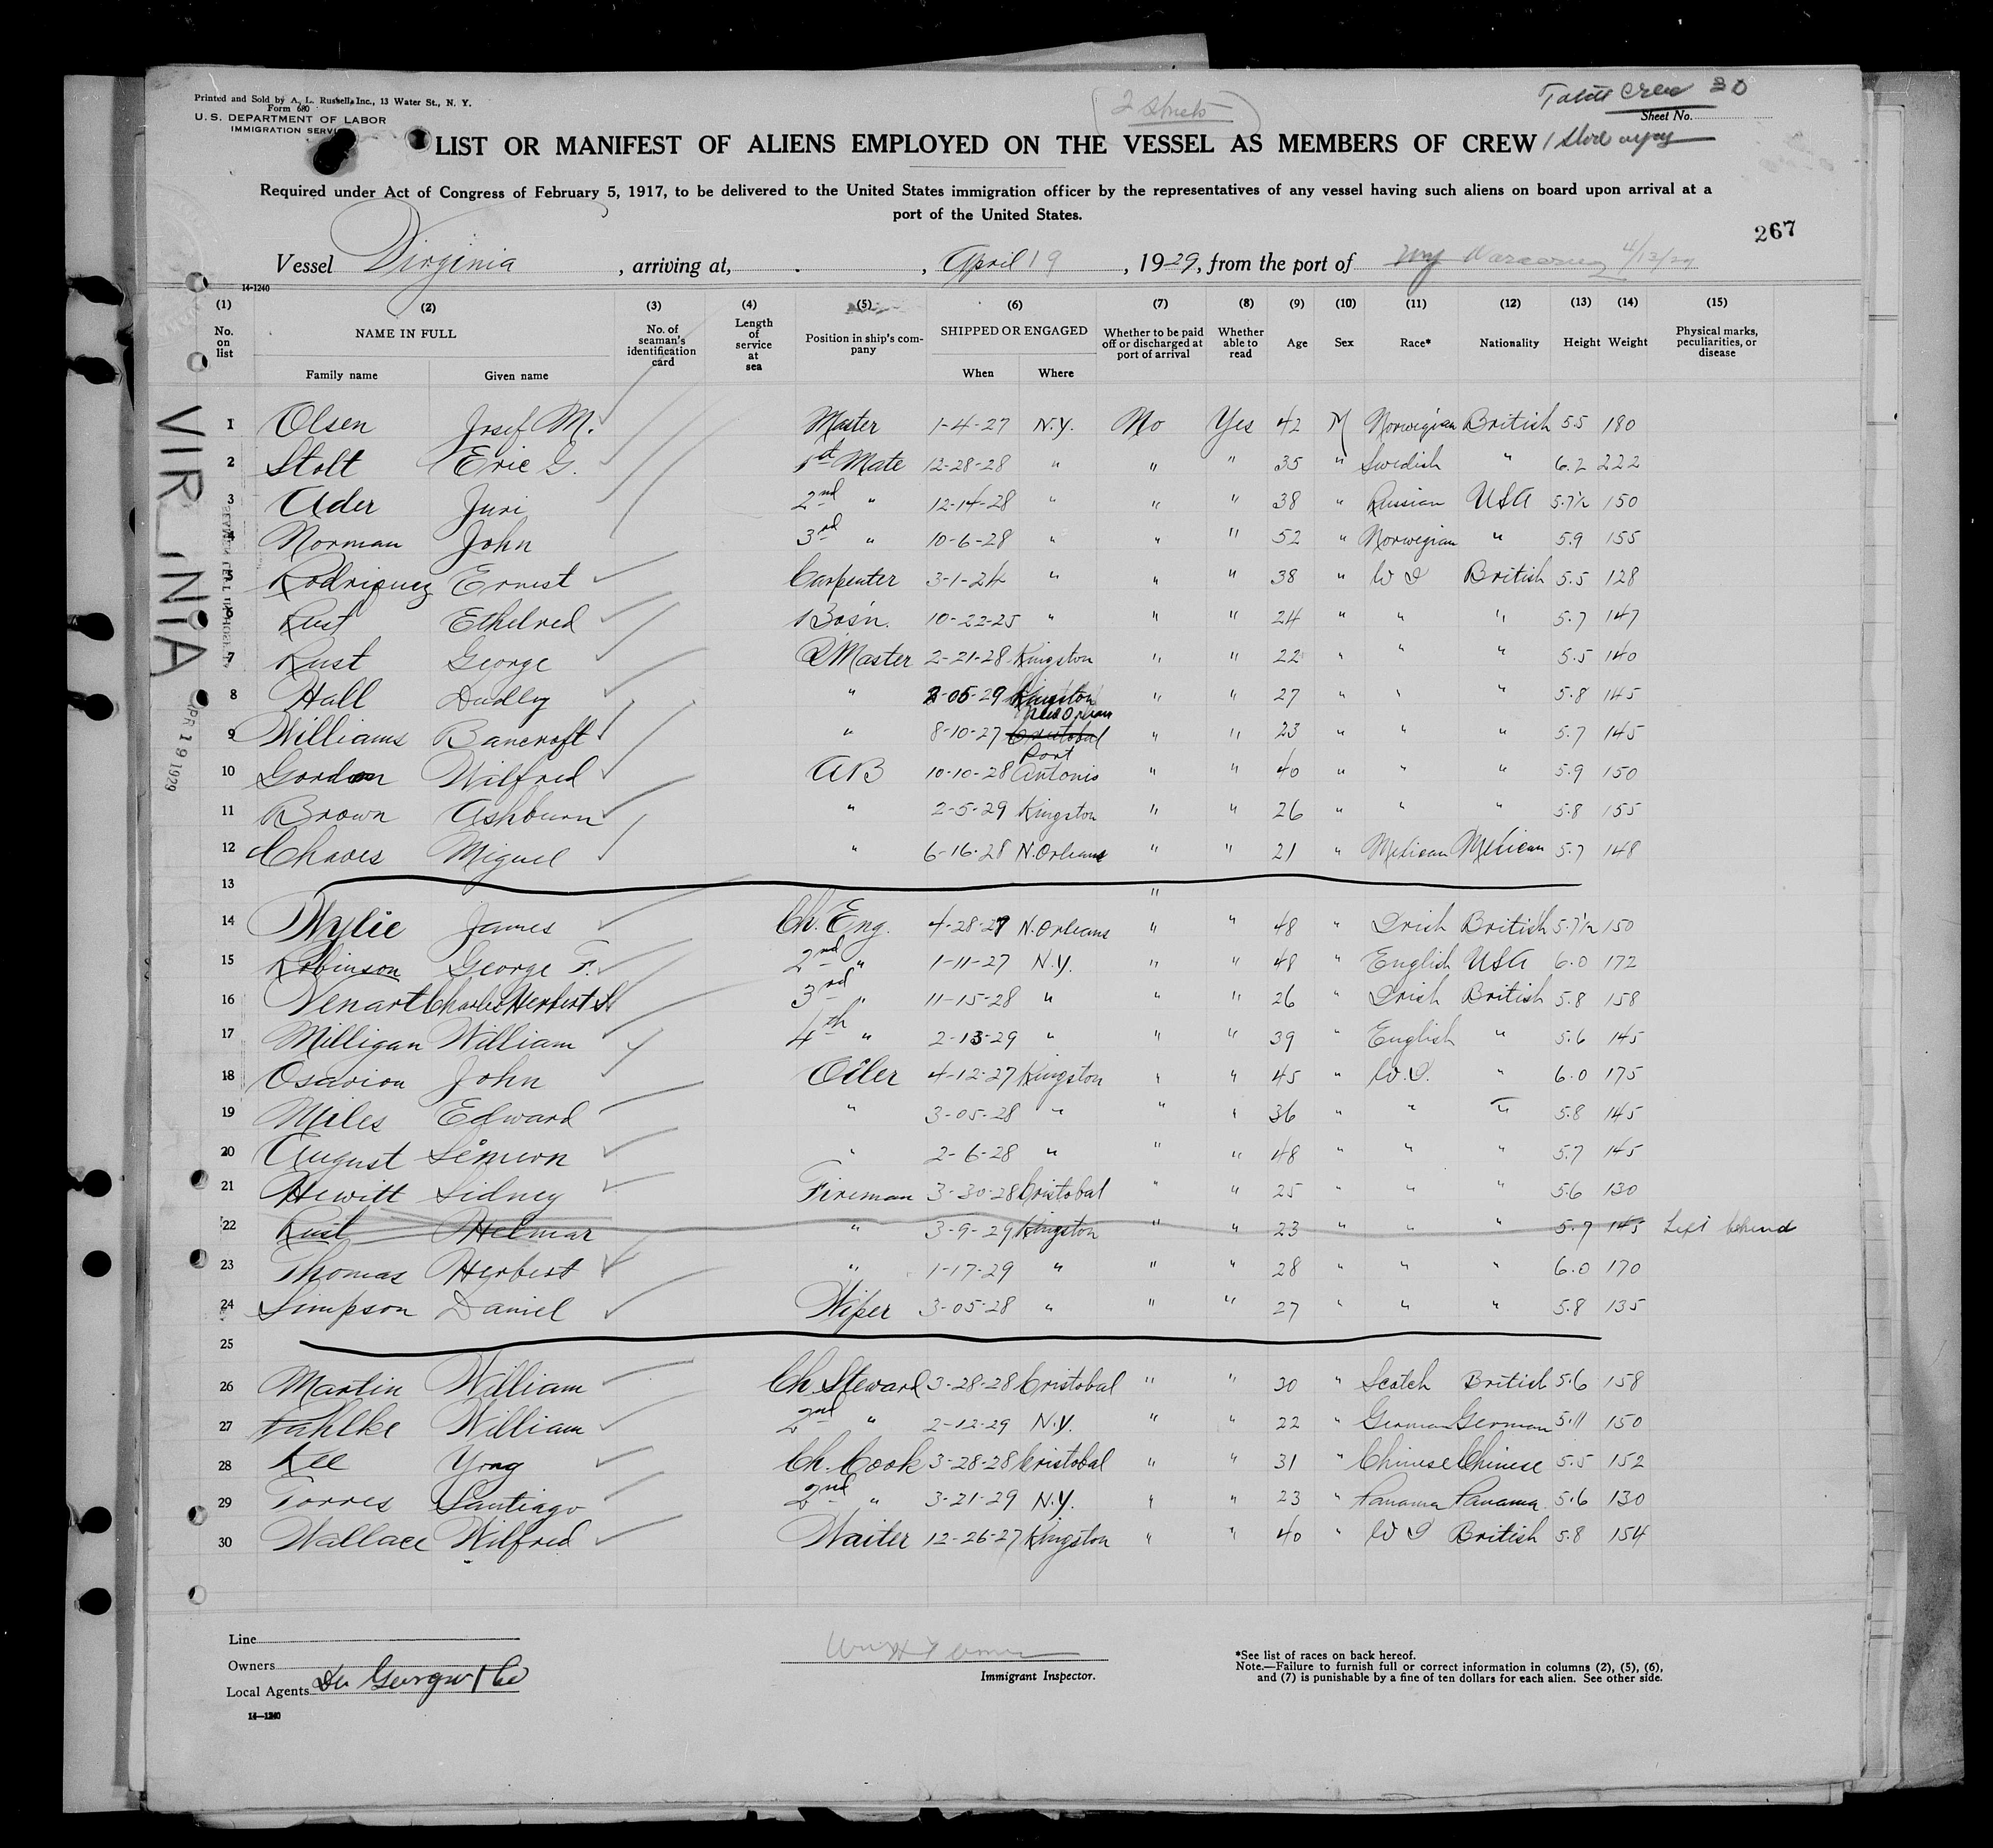 Printed and Sold by A. L. Russell, Inc., 13 Water St., N. Y.
Form 680
U. S. DEPARTMENT OF LABOR
IMMIGRATION SERVICE
2 sheets
Total Crew 30
Sheet No.
LIST OR MANIFEST OF ALIENS EMPLOYED ON THE VESSEL AS MEMBERS OF CREW
Required under Act of Congress of February 5, 1917, to be delivered to the United States immigration officer by the representatives of any vessel having such aliens on board upon arrival at a
port of the United States.
267
Vessel Virginia , arriving at, , April 19 , 1929, from the port of 4/12/29
14-1240
(1) (2) (3) (4) (5) (6) (7) (8) (9) (10) (11) (12) (13) (14) (15)
No. on list NAME IN FULL No. of seaman's identification card Length of service at sea Position in ship's company SHIPPED OR ENGAGED Whether to be paid off or discharged at port of arrival Whether able to read Age Sex Race* Nationality Height Weight Physical marks, peculiarities, or disease
Family name Given name When Where
1 Olsen Josef M. Master 1-4-27 N.Y. No Yes 42 M Norwegian British 5.5 180
2 Stolt Eric G. 1st Mate 12-28-28 " " " 35 " Swedish " 6.2 222
3 Ader Juri 2nd " 12-14-28 " " " 38 " Russian USA 5.7½ 150
4 Norman John 3rd " 10-6-28 " " " 52 " Norwegian " 5.9 155
5 Rodriquez Ernest Carpenter 3-1-24 " " " 38 " W I British 5.5 128
6 Rust Ethelred Bosn. 10-22-25 " " " 24 " " " 5.7 147
7 Rust George Q Master 2-21-28 Kingston " " 22 " " " 5.5 140
8 Hall Dudley " 2-05-29 Kingston " " 27 " " " 5.8 145
9 Williams Bancroft " 8-10-27 Cristobal New Orleans " " 23 " " " 5.7 145
10 Gordon Wilfred AB 10-10-28 Port Antonio " " 40 " " " 5.9 150
11 Brown Ashburn " 2-5-29 Kingston " " 26 " " " 5.8 155
12 Chaves Miguel " 6-16-28 N. Orleans " " 21 " Mexican Mexican 5.7 148
13 "
14 Wylie James Ch. Eng. 4-28-27 N. Orleans " " 48 " Irish British 5.7½ 150
15 Robinson George F. 2nd " 1-11-27 N.Y. " " 48 " English USA 6.0 172
16 Venart Charles Herbert S. 3rd " 11-15-28 " " " 26 " Irish British 5.8 158
17 Milligan William 4th " 2-13-29 " " " 39 " English " 5.6 145
18 Osavion John Oiler 4-12-27 Kingston " " 45 " W.I. " 6.0 175
19 Miles Edward " 3-05-28 " " " 36 " " " 5.8 145
20 August Simeon " 2-6-28 " " " 48 " " " 5.7 145
21 Hewitt Sidney Fireman 3-30-28 Cristobal " " 25 " " " 5.6 130
22 Rust Helmar " 3-9-29 Kingston " " 23 " " " 5.7 145 Left behind
23 Thomas Herbert " 1-17-29 " " " 28 " " " 6.0 170
24 Simpson Daniel Wiper 3-05-28 " " " 27 " " " 5.8 135
25
26 Martin William Ch Steward 3-28-28 Cristobal " " 30 " Scotch British 5.6 158
27 Fahlke William 2nd " 2-12-29 N.Y. " " 22 " German German 5.11 150
28 Kee Yong Ch. Cook 3-28-28 Cristobal " " 31 " Chinese Chinese 5.5 152
29 Torres Santiago 2nd " 3-21-29 N.Y. " " 23 " Panama Panama 5.6 130
30 Wallace Wilfred Waiter 12-26-27 Kingston " " 40 " W I British 5.8 154
VIRGINIA
APR 19 1929
Line
Owners
Local Agents
Immigrant Inspector.
*See list of races on back hereof.
Note.—Failure to furnish full or correct information in columns (2), (5), (6),
and (7) is punishable by a fine of ten dollars for each alien. See other side.
14—1240